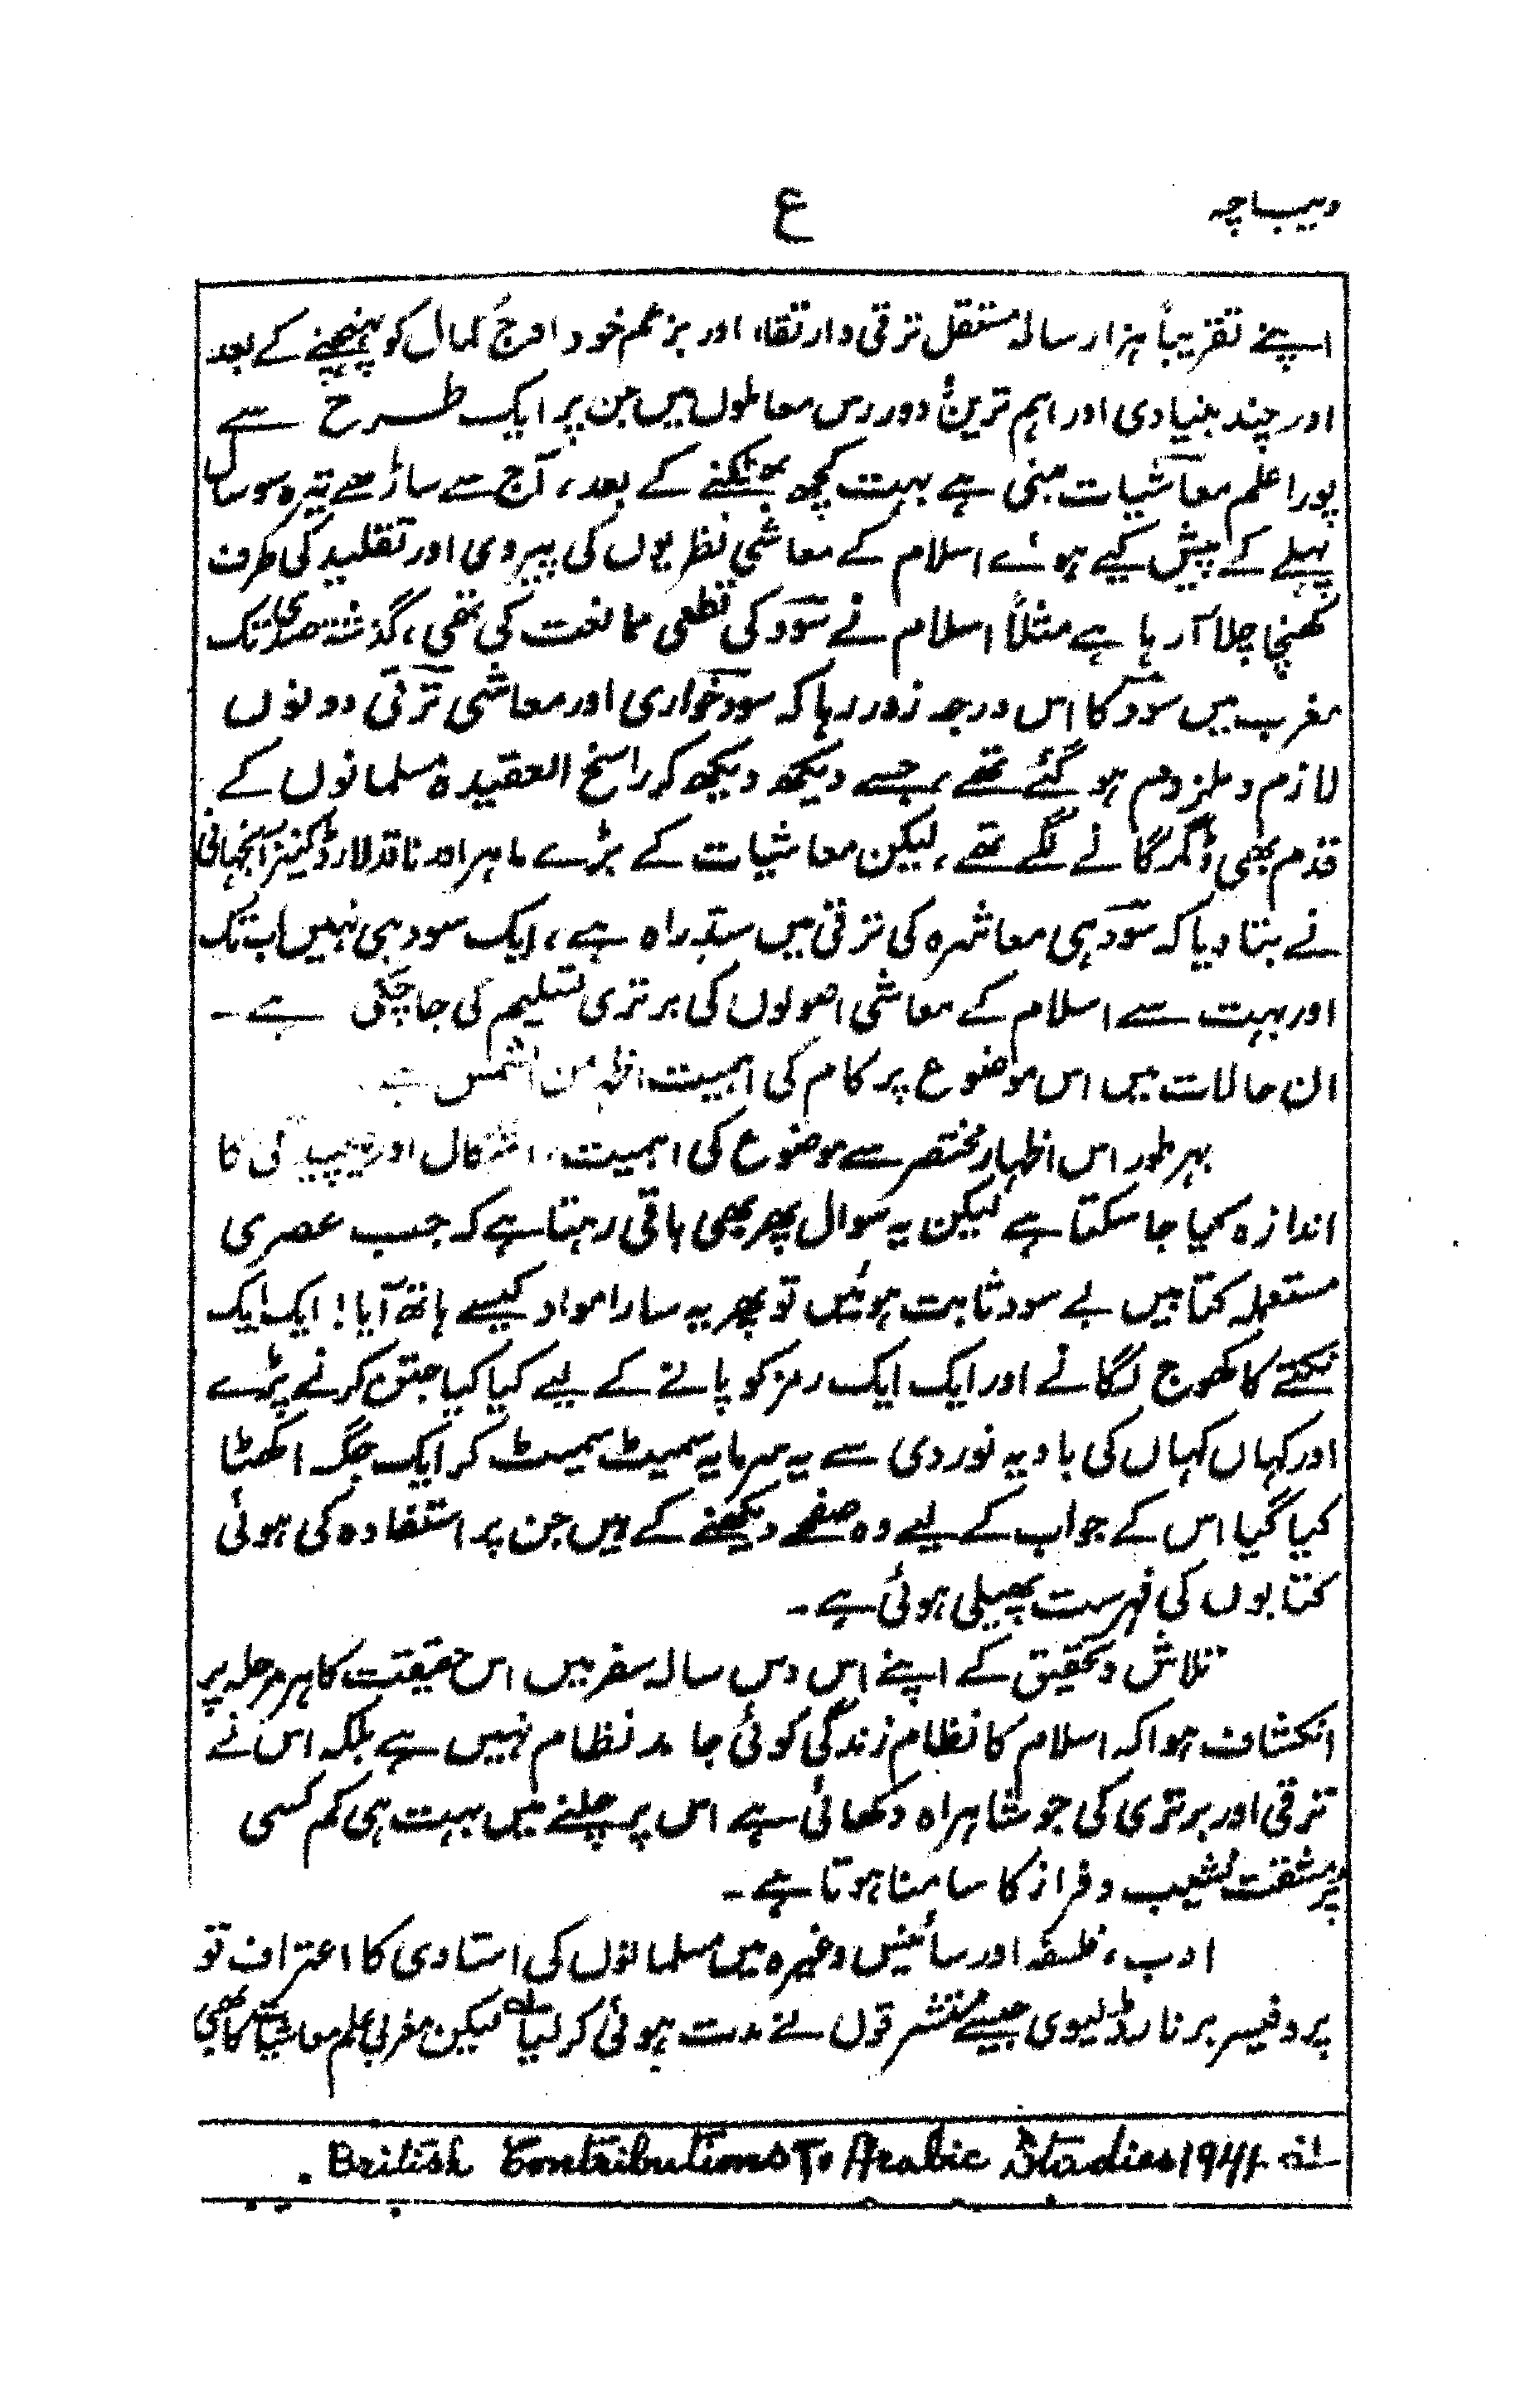 دیباچہ
ع
اپنے تقریباً ہزار سالہ مستقل ترقی و ارتقاء اور بزعم خود اوج کمال کو پہنچنے کے بعد
اور چند بنیادی اور اہم ترین دور رس معاملوں میں جن پر ایک طرح سے
پورا علم معاشیات مبنی ہے بہت کچھ بھٹکنے کے بعد، آج سے ساڑھے تیرہ سو سال
پہلے کے پیش کیے ہوئے اسلام کے معاشی نظریوں کی پیروی اور تقلید کی طرف
کھنچا چلا آ رہا ہے مثلاً اسلام نے سود کی قطعی ممانعت کی تھی، گذشتہ صدی تک
مغرب میں سود کا اس درجہ زور رہا کہ سود خواری اور معاشی ترقی دونوں
لازم و ملزوم ہو گئے تھے، جسے دیکھ دیکھ کر راسخ العقیدہ مسلمانوں کے
قدم بھی ڈگمگانے لگے تھے، لیکن معاشیات کے بڑے ماہر اور ناقد لارڈ کینز آنجہانی
نے بتا دیا کہ سود ہی معاشرہ کی ترقی میں سدّ راہ ہے، ایک سود ہی نہیں اب تک
اور بہت سے اسلام کے معاشی اصولوں کی برتری تسلیم کی جا چکی ہے۔
ان حالات میں اس موضوع پر کام کی اہمیت اظہر من الشمس ہے
بہر طور اس اظہار مختصر سے موضوع کی اہمیت، اشکال اور پیچیدگی کا
اندازہ کیا جا سکتا ہے لیکن یہ سوال پھر بھی باقی رہتا ہے کہ جب عصری
مستعملہ کتابیں بے سود ثابت ہوئیں تو پھر یہ سارا مواد کیسے ہاتھ آیا! ایک ایک
نکتے کا کھوج لگانے اور ایک ایک رمز کو پانے کے لیے کیا کیا جتن کرنے پڑے
اور کہاں کہاں کی بادیہ نوردی سے یہ سرمایہ سمیٹ سمیٹ کر ایک جگہ اکھٹا
کیا گیا اس کے جواب کے لیے وہ صفحے دیکھنے کے ہیں جن پر استفادہ کی ہوئی
کتابوں کی فہرست پھیلی ہوئی ہے۔
تلاش و تحقیق کے اپنے اس دس سالہ سفر میں اس حقیقت کا ہر مرحلہ پر
انکشاف ہوا کہ اسلام کا نظام زندگی کوئی جامد نظام نہیں ہے بلکہ اس نے
ترقی اور برتری کی جو شاہراہ دکھائی ہے اس پر چلنے میں بہت ہی کم کسی
پر مشقت نشیب و فراز کا سامنا ہوتا ہے۔
ادب، فلسفہ اور سائنیس وغیرہ میں مسلمانوں کی استادی کا اعتراف تو
پروفیسر برنارڈ لیوی جیسے مستشرقوں نے مدت ہوئی کر لیا لیکن مغربی علم معاشیات کا بھی
British Contributions To Arabic Studies 1941